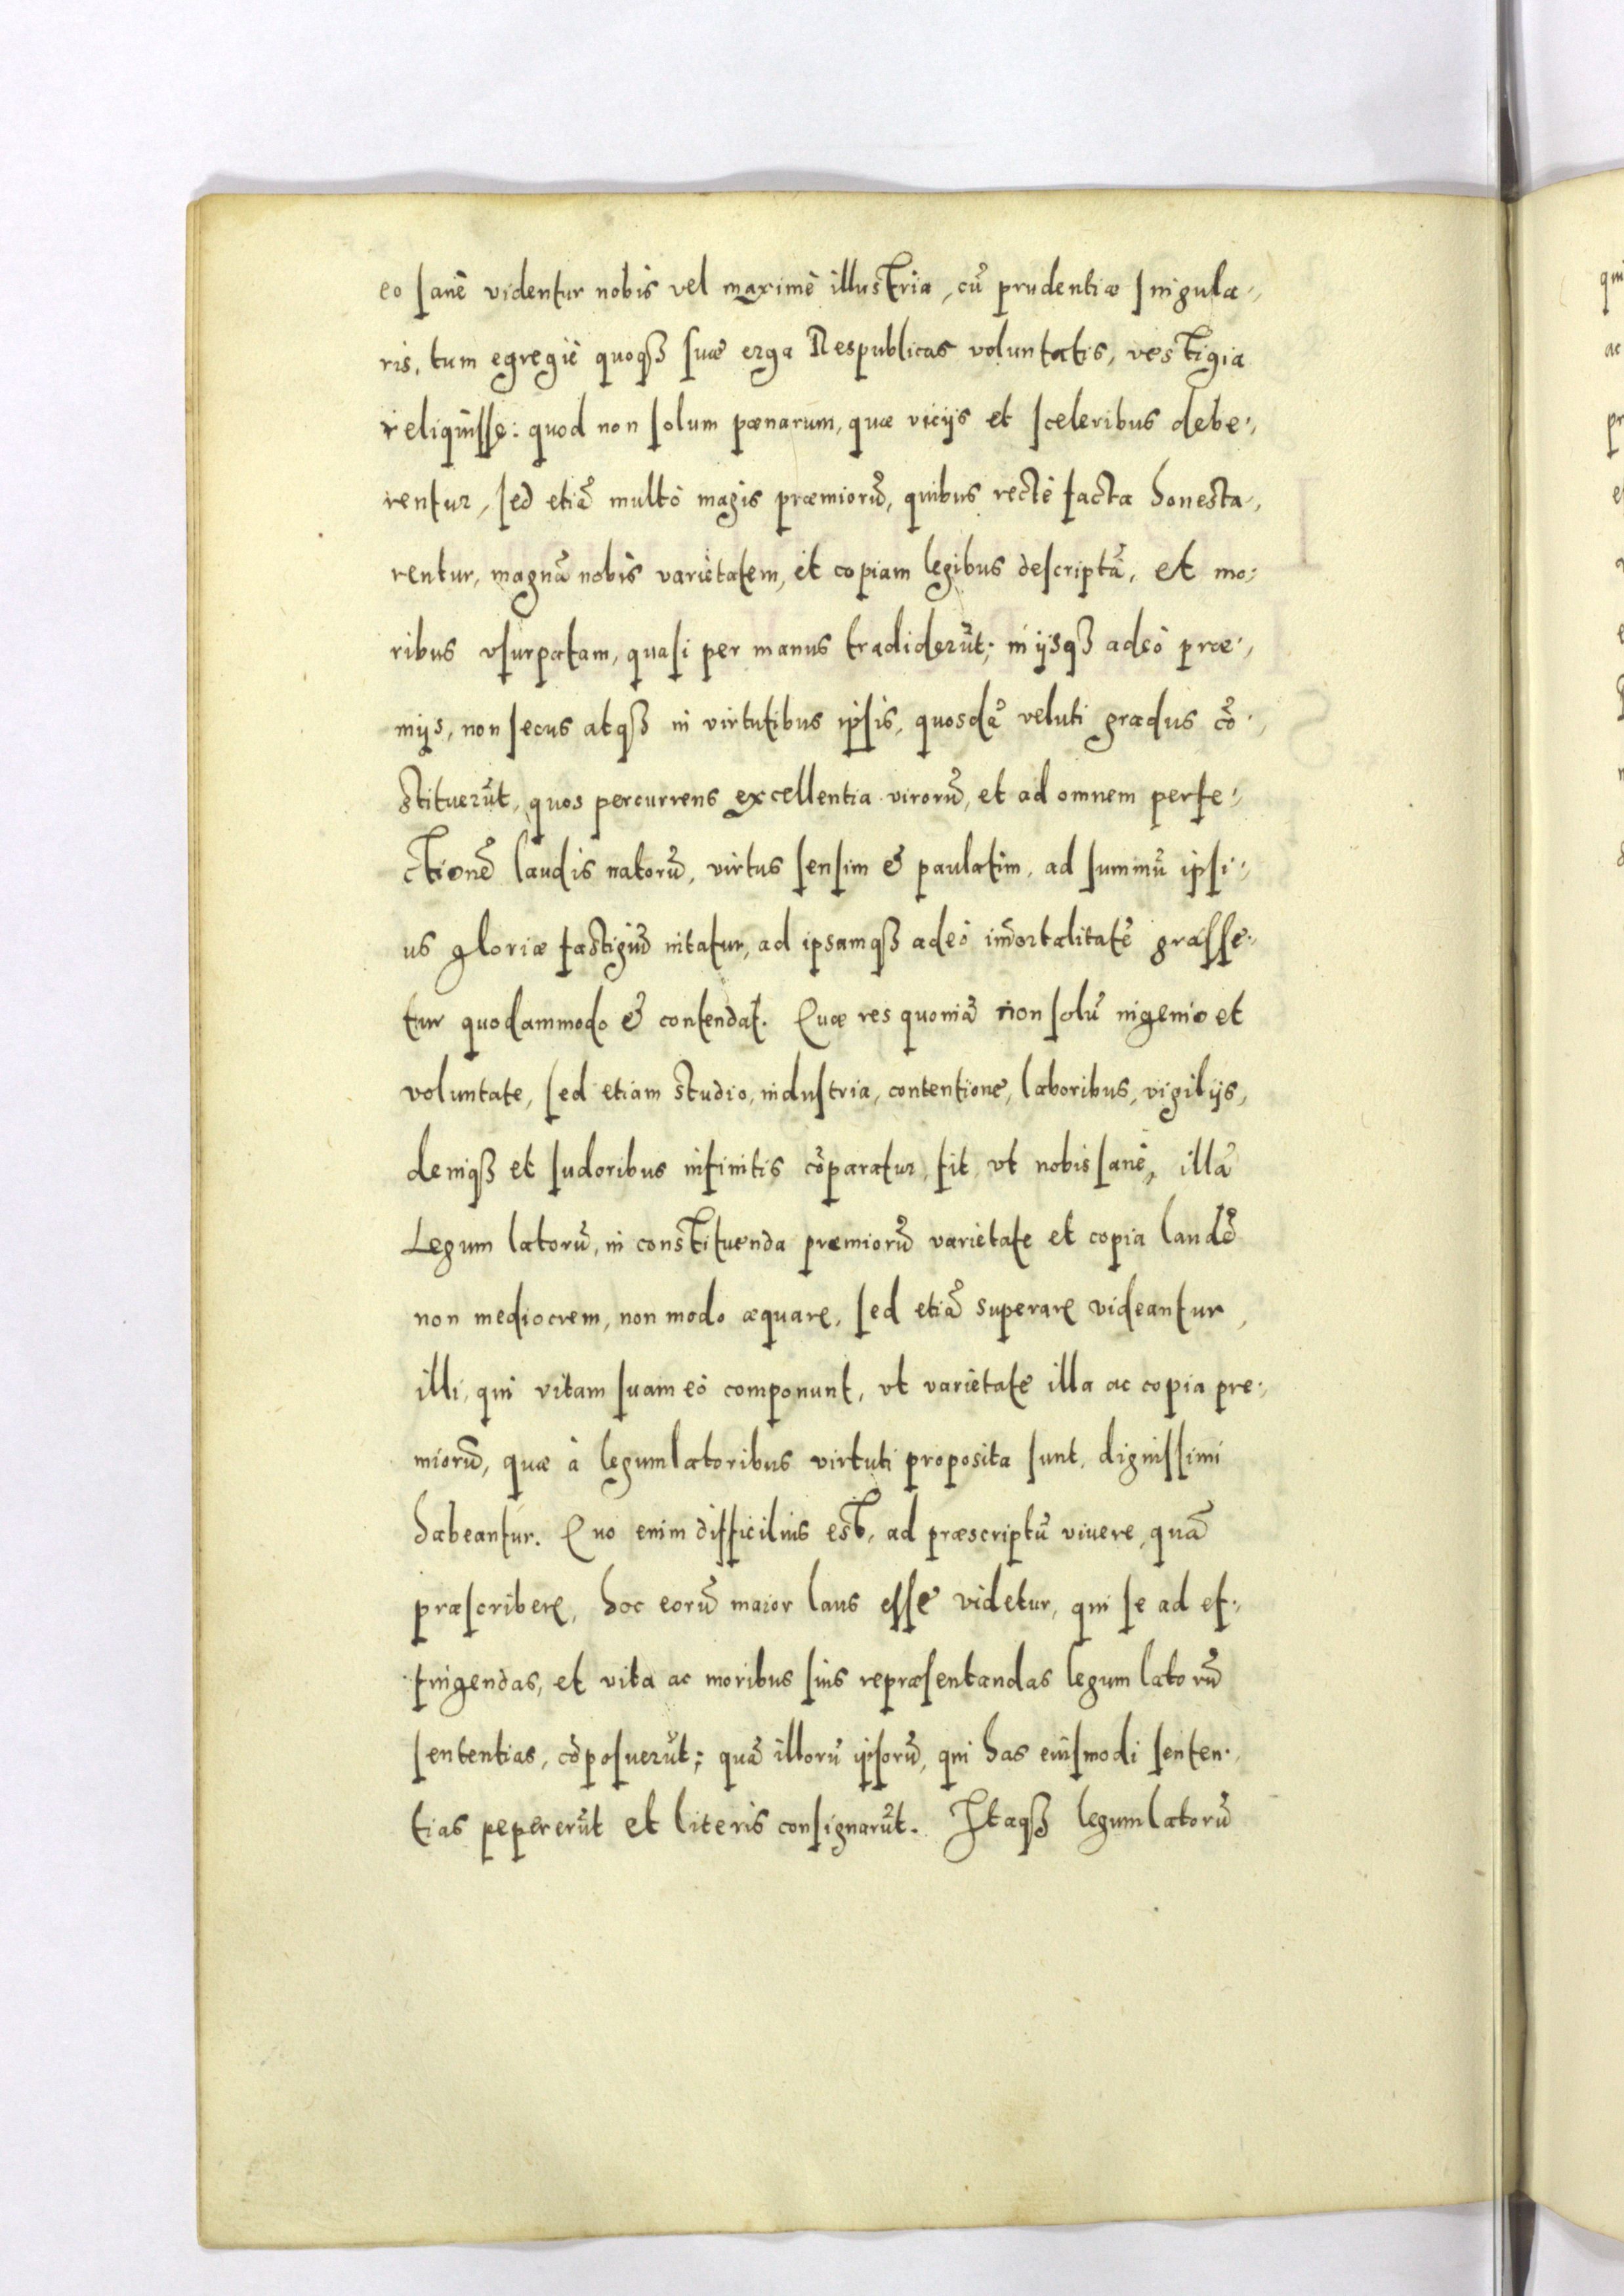 eo ſanè videntur nobis vel maximè illustria, cũ prudentiæ ſingula-,
ris, tum egregiè quoqꝫ ſuæ erga Respublicas voluntatis, vestigia
reliquiſſe: quod non ſolum pœnarum, quæ vicijs et ſceleribus debe-,
rentur, ſed etiã multò magis præmiorũ, quibus rectè facta honesta-,
rentur, magnã nobis varietatem, et copiam legibus deſcriptã, et mo-
ribus vſurpatam, quaſi per manus tradiderũt; in ijsqꝫ adeò præ-,
mijs, non ſecus atqꝫ in virtutibus ipſis, quosdã veluti gradus cõ-,
stituerũt, quos percurrens excellentia virorũ, et ad omnem perfe-,
ctionẽ laudis natorũ, virtus ſenſim & paulatim, ad ſummũ ipſi-,
us gloriæ fastigiũ nitatur, ad ipsamqꝫ adeò im̃ortalitatẽ graſſe-
tur quodammodo & contendat. Quæ res quoniã non ſolũ ingenio et
voluntate, ſed etiam studio, induſtria, contentione, laboribus, vigilijs,
deniqꝫ et ſudoribus infinitis cõparatur, fit, vt nobis ſanè, illã
Legum latorũ, in constituenda præmiorũ varietate et copia laudẽ
non mediocrem, non modo æquare, ſed etiã superare videantur,
illi, qui vitam ſuam eò componunt, vt varietate illa ac copia pre-,
miorũ, quæ à legumlatoribus virtuti proposita ſunt, digniſſimi
habeantur. Quo enim difficilius est, ad præscriptũ viuere, quã
præſcribere, hoc eorũ maior laus eſſe videtur, qui ſe ad ef-,
fingendas, et vita ac moribus ſuis repræſentandas legum latorũ
ſententias, cõpoſuerũt; quã illorũ ipſorũ, qui has eiuſmodi ſenten-,
tias pepererũt et literis conſignarũt. Itaqꝫ legumlatorũ